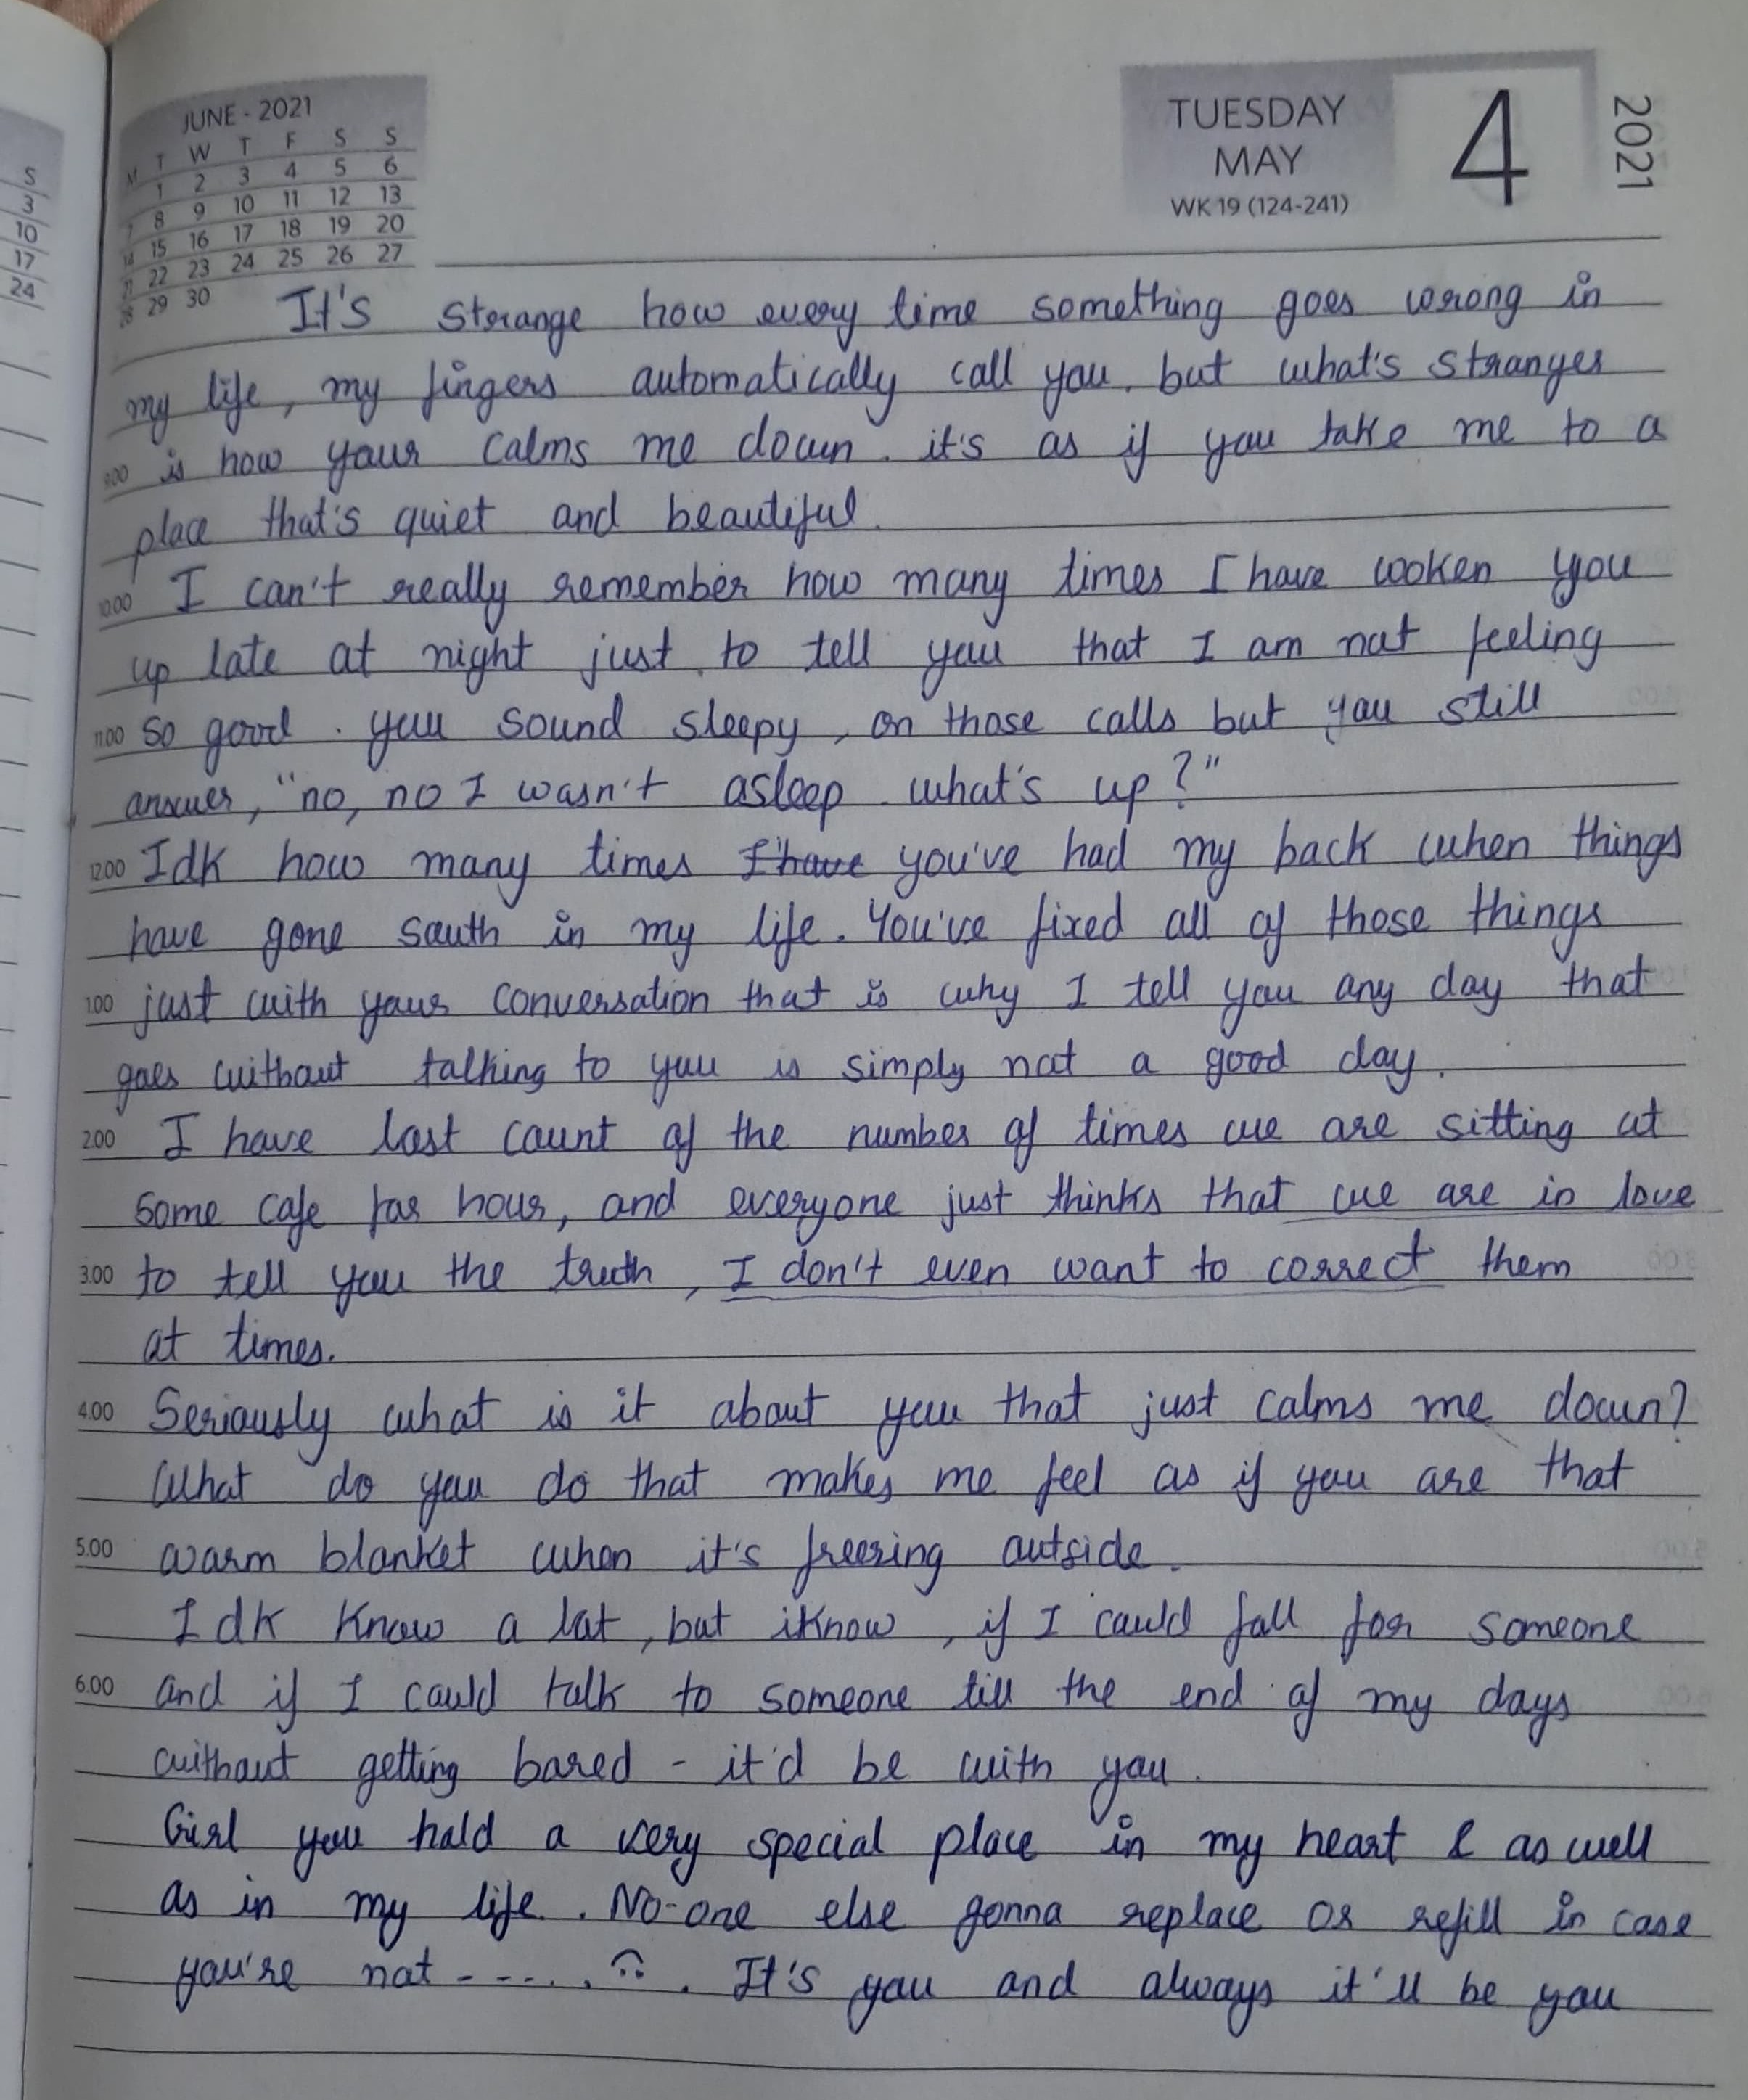 JUNE - 2021
M T W T F S S
1 2 3 4 5 6
7 8 9 10 11 12 13
14 15 16 17 18 19 20
21 22 23 24 25 26 27
28 29 30
TUESDAY
MAY
WK 19 (124-241)
4
2021
S
3
10
17
24
It's strange how every time something goes wrong in
my life, my fingers automatically call you. but what's stranger
9.00 is how your calms me down. it's as if you take me to a
place that's quiet and beautiful.
10.00 I can't really remember how many times I have woken you
up late at night just to tell you that I am not feeling
11.00 so good. you sound sleepy, on those calls but you still
answer, "no, no I wasn't asleep what's up?"
12.00 Idk how many times I have you've had my back when things
have gone south in my life. You've fixed all of those things
1.00 just with your conversation that is why I tell you any day that
goes without talking to you is simply not a good day.
2.00 I have lost count of the number of times we are sitting at
some cafe for hour, and everyone just thinks that we are in love
3.00 to tell you the truth, I don't even want to correct them
at times.
4.00 Seriously what is it about you that just calms me down?
What do you do that makes me feel as if you are that
5.00 warm blanket when it's freezing outside.
Idk know a lot, but iknow, if I could fall for someone
6.00 and if I could talk to someone till the end of my days
without getting bored - it'd be with you.
Girl you hold a very special place in my heart & as well
as in my life. No-one else gonna replace or refill in case
you're not - - - . . . . It's you and always it'll be you